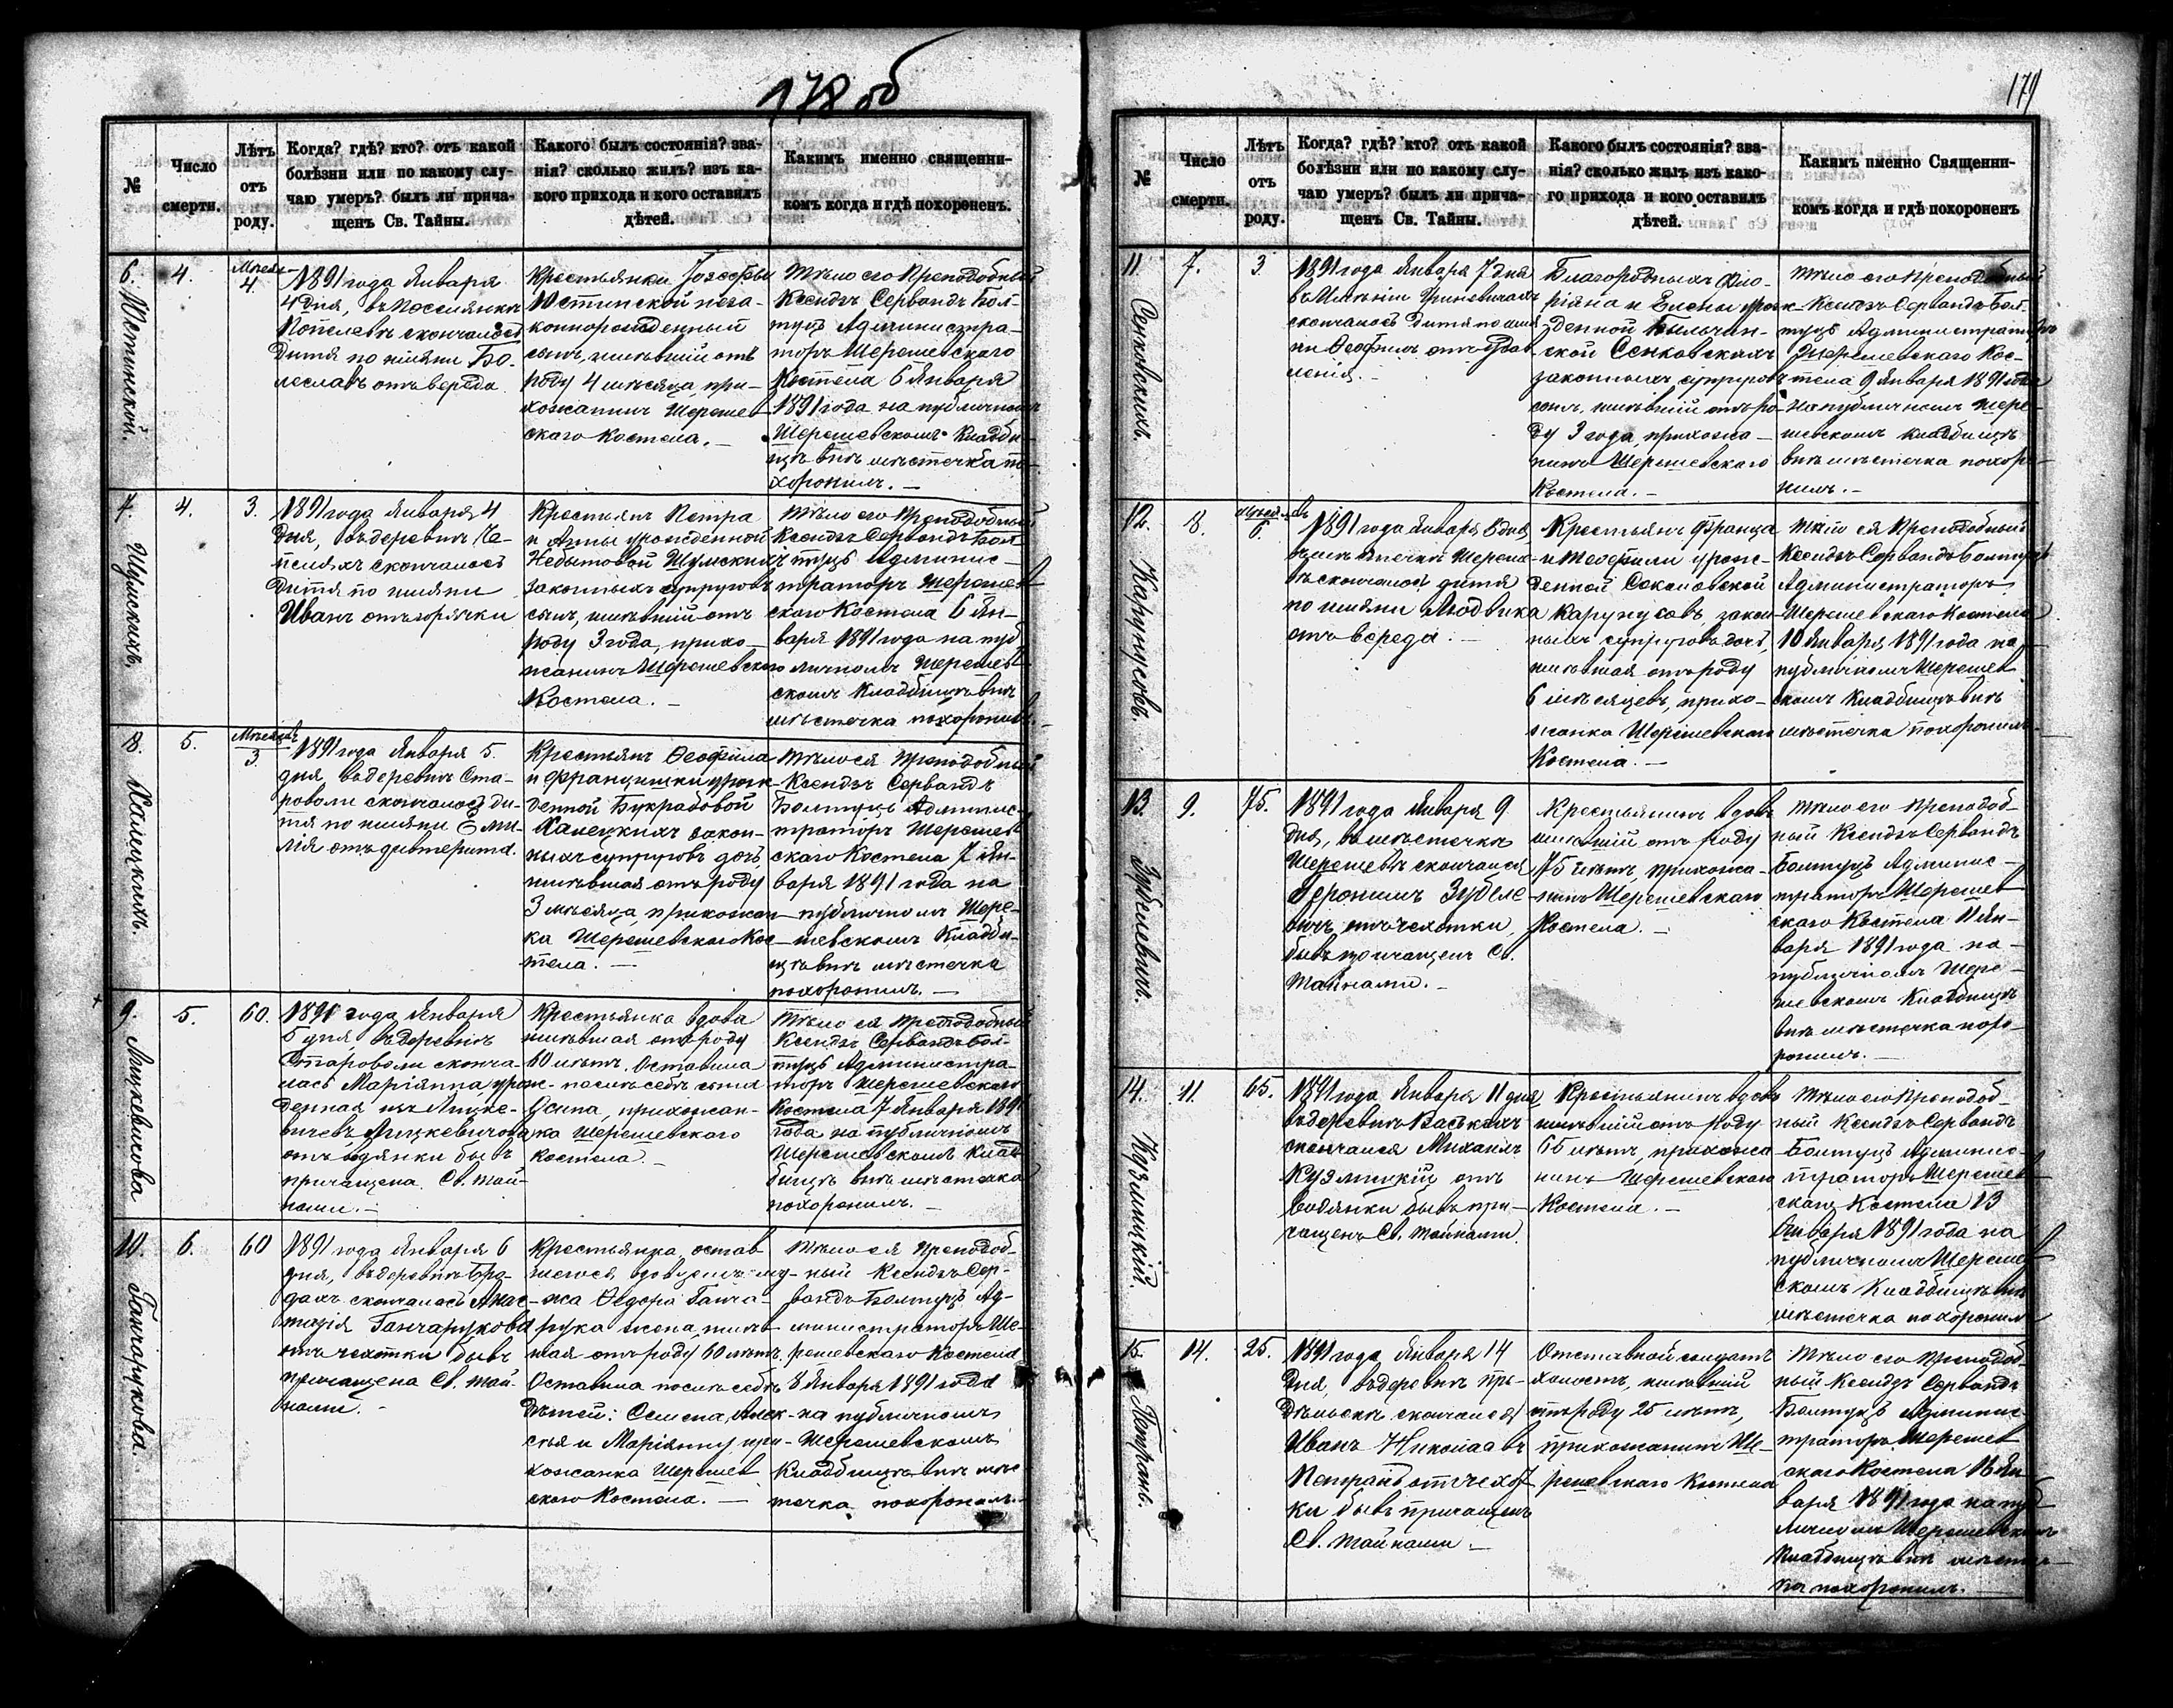 178 об
№
Число
смерти.
Лѣтъ
отъ
роду.
Когда? гдѣ? кто? отъ какой
болѣзни или по какому слу-
чаю умеръ? былъ ли прича-
щенъ Св. Тайны.
Какого былъ состоянія? зва-
нія? сколько жилъ? изъ ка-
кого прихода и кого оставилъ
дѣтей.
Какимъ именно священни-
комъ когда и гдѣ похороненъ.
6.
Юстинской.
4.
4.
1891 года Января
4 дня, въ
скончалось
дитя по имени Бо-
леславъ отъ вереда
Крестьянки Іозефы
Юстинской неза-
коннорожденный
сынъ, имѣвшій отъ
роду 4 мѣсяца, при-
хожанинъ Шерешев-
скаго Костела.
Тѣло его Преподобный
Ксендзъ Сервандъ Бол-
туць Администра-
торъ Шерешевскаго
Костела 6 Января
1891 года на публичномъ
Шерешевскомъ Кладби-
щѣ внѣ мѣстечка по-
хоронилъ.
7.
Шумскихъ.
4.
3.
1891 года Января 4
дня, въ деревнѣ Че-
скончалось
дитя по имени
Иванъ отъ горячки
Крестьянъ Петра
и Анны урожденной
Шумскихъ
законныхъ супруговъ
сынъ, имѣвшій отъ
роду 3 года, прихо-
жанинъ Шерешевскаго
Костела.
Тѣло его Преподобный
Ксендзъ Сервандъ Бол-
туць Админис-
траторъ Шерешев-
скаго Костела 6 Ян-
варя 1891 года на пуб-
личномъ Шерешев-
скомъ Кладбищѣ внѣ
мѣстечка похоронилъ.
8.
Халецкихъ.
5.
3
1891 года Января 5.
дня, въ деревнѣ Ста-
роволи скончалось ди-
тя по имени Эми-
лія отъ дифтерита.
Крестьянъ Ѳеофила
и Францишки урож-
денной Букрабовой
Халецкихъ закон-
ныхъ супруговъ дочь,
имѣвшая отъ роду
3 мѣсяца, прихожан-
ка Шерешевскаго Кос-
тела.
Тѣло ея Преподобный
Ксендзъ Сервандъ
Болтуць Админис-
траторъ Шерешев-
скаго Костела 7 Ян-
варя 1891 года на
публичномъ Шере-
шевскомъ Кладби-
щѣ внѣ мѣстечка
похоронилъ.
9.
Лицкевичова
5.
60.
1891 года Января
5 дня, въ деревнѣ
Староволи сконча-
лась Маріянна урож-
денная изъ
Лицкевичова
отъ водянки бывъ
причащена Св. Тай-
нами.
Крестьянка вдова
имѣвшая отъ роду
60 лѣтъ. Оставила
послѣ себя сына
Осипа, прихожан-
ка Шерешевскаго
Костела.
Тѣло ея Преподобный
Ксендзъ Сервандъ Бол-
туць Администра-
торъ Шерешевскаго
Костела 7 Января 1891
года на публичномъ
Шерешевскомъ Клад-
бищѣ внѣ мѣстечка
похоронилъ.
10.
Ганчарукова.
6.
60
1891 года Января 6
дня, въ деревнѣ
скончалась Анас-
тазія Ганчарукова
отъ чахотки бывъ
причащена Св. Тай-
нами.
Крестьянка, остав-
шегося вдовцемъ му-
жа Ѳедора Ганча-
рука жена, имѣв-
шая отъ роду 60 лѣтъ.
Оставила послѣ себя
дѣтей: Семена, Алек-
сѣя и Маріянну при-
хожанка Шерешев-
скаго Костела.
Тѣло ея Преподоб-
ный Ксендзъ Сер-
вандъ Болтуць Ад-
министраторъ Ше-
решевскаго Костела
8 Января 1891 года
на публичномъ
Шерешевскомъ
Кладбищѣ внѣ мѣс-
течка похоронилъ.
179
№
Число
смерти.
Лѣтъ
отъ
роду.
Когда? гдѣ? кто? отъ какой
болѣзни или по какому слу-
чаю умеръ? былъ ли прича-
щенъ Св. Тайны.
Какого былъ состоянія? зва-
нія? сколько жилъ изъ како-
го прихода и кого оставилъ
дѣтей.
Какимъ именно Священни-
комъ когда и гдѣ похороненъ
11.
Сенковскихъ.
7.
3.
1891 года Января 7 дня
въ Имѣніи Гриневичахъ
скончалось дитя по име-
ни Ѳеофилъ отъ
Благородныхъ Фло-
ріяна и Елены урож-
денной
Сенковскихъ
законныхъ супруговъ
сынъ, имѣвшій отъ ро-
ду 3 года, прихожа-
нинъ Шерешевскаго
Костела.
Тѣло его Преподобный
Ксендзъ Сервандъ Бол-
туць Администраторъ
Шерешевскаго Кос-
тела 9 Января 1891 года
на публичномъ Шере-
шевскомъ кладбищѣ
внѣ мѣстечка похоро-
нилъ.
12.
Карунусовъ.
8.
6.
1891 года Января 8 дня
въ мѣстечкѣ Шереше-
вѣ скончалось дитя
по имени Людвика
отъ вереда.
Крестьянъ Франца
и Теофили урож-
денной Соколовской
Карунусовъ, закон-
ныхъ супруговъ дочь,
имѣвшая отъ роду
6 мѣсяцевъ, прихо-
жанка Шерешевскаго
Костела.
Тѣло ея Преподобный
Ксендзъ Сервандъ Болтуць
Администраторъ
Шерешевскаго Костела
10 Января 1891 года на
публичномъ Шерешев-
скомъ Кладбищѣ внѣ
мѣстечка похоронилъ.
13.
Зубелевичъ.
9.
75.
1891 года Января 9
дня, въ мѣстечкѣ
Шерешевѣ скончался
Іеронимъ Зубеле-
вичъ, отъ чахотки,
бывъ причащенъ Св.
Тайнами.
Крестьянинъ вдовъ
имѣвшій отъ роду
75 лѣтъ, прихожа-
нинъ Шерешевскаго
Костела.
Тѣло его Преподоб-
ный Ксендзъ Сервандъ
Болтуць Админис-
траторъ Шерешев-
скаго Костела 11 Ян-
варя 1891 года на
публичномъ Шере-
шевскомъ Кладбищѣ
внѣ мѣстечка похо-
ронилъ.
14.
Кузмицкій.
11.
65.
1891 года Января 11 дня
въ деревнѣ Васькахъ
скончался Михаилъ
Кузмицкій отъ
водянки бывъ при-
чащенъ Св. Тайнами.
Крестьянинъ вдовъ
имѣвшій отъ роду
65 лѣтъ, прихожа-
нинъ Шерешевскаго
Костела.
Тѣло его Преподоб-
ный Ксендзъ Сервандъ
Болтуць Админис-
траторъ Шерешев-
скаго Костела 13
Января 1891 года на
публичномъ Шерешев-
скомъ Кладбищѣ внѣ
мѣстечка похоронилъ
15.
Петрань.
14.
25.
1891 года Января 14
дня, въ деревнѣ
скончался
Иванъ Николаевъ
отъ чахот-
ки бывъ причащенъ
Св. Тайнами.
Отставной солдатъ
холостъ, имѣвшій
отъ роду 25 лѣтъ,
прихожанинъ Ше-
решевскаго Костела
Тѣло его Преподоб-
ный Ксендзъ Сервандъ
Болтуць Админис-
траторъ Шерешев-
скаго Костела 16 Ян-
варя 1891 года на пуб-
личномъ Шерешевскомъ
Кладбищѣ внѣ мѣстеч-
ка похоронилъ.